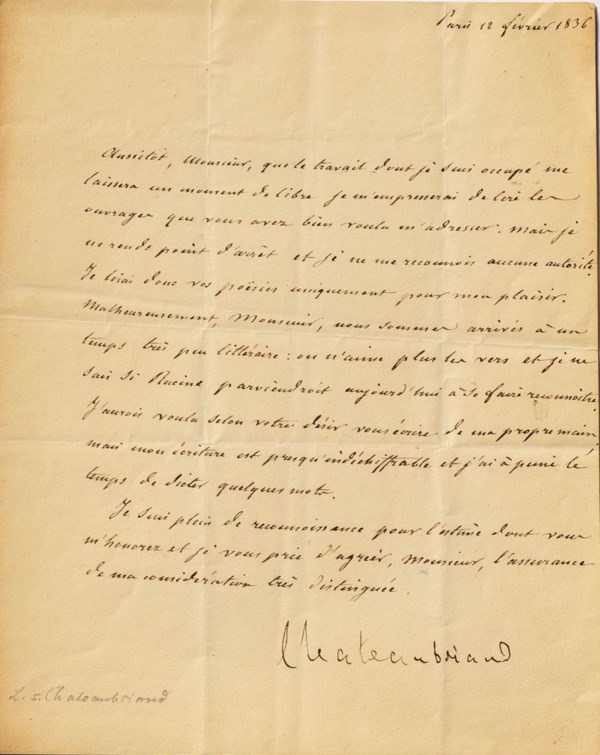 Paris 12 février 1836
Aussitôt, Monsieur, que le travail dont je suis occupé me
laissera un moment de libre je m'empresserai de lire les
ouvrages que vous avez bien voulu m'adresser. Mais je
ne rends point d'arrêt et je ne me reconnois aucune autorité.
Je lirai donc vos poësies uniquement pour mon plaisir.
Malheureusement, Monsieur, nous sommes arrivés à un
temps très peu littéraire : on n'aime plus les vers et je ne
sais si Racine parviendroit aujourd'hui à se faire reconnoitre.
J'aurois voulu selon votre désir vous écrire de ma propre main
mais mon écriture est presqu'indéchiffrable et j'ai à peine le
temps de dicter quelques mots.
Je suis plein de reconnoissance pour l'estime dont vous
m'honorez et je vous prie d'agréer, Monsieur, l'assurance
de ma considération très distinguée.
Chateaubriand
L. s. Chateaubriand